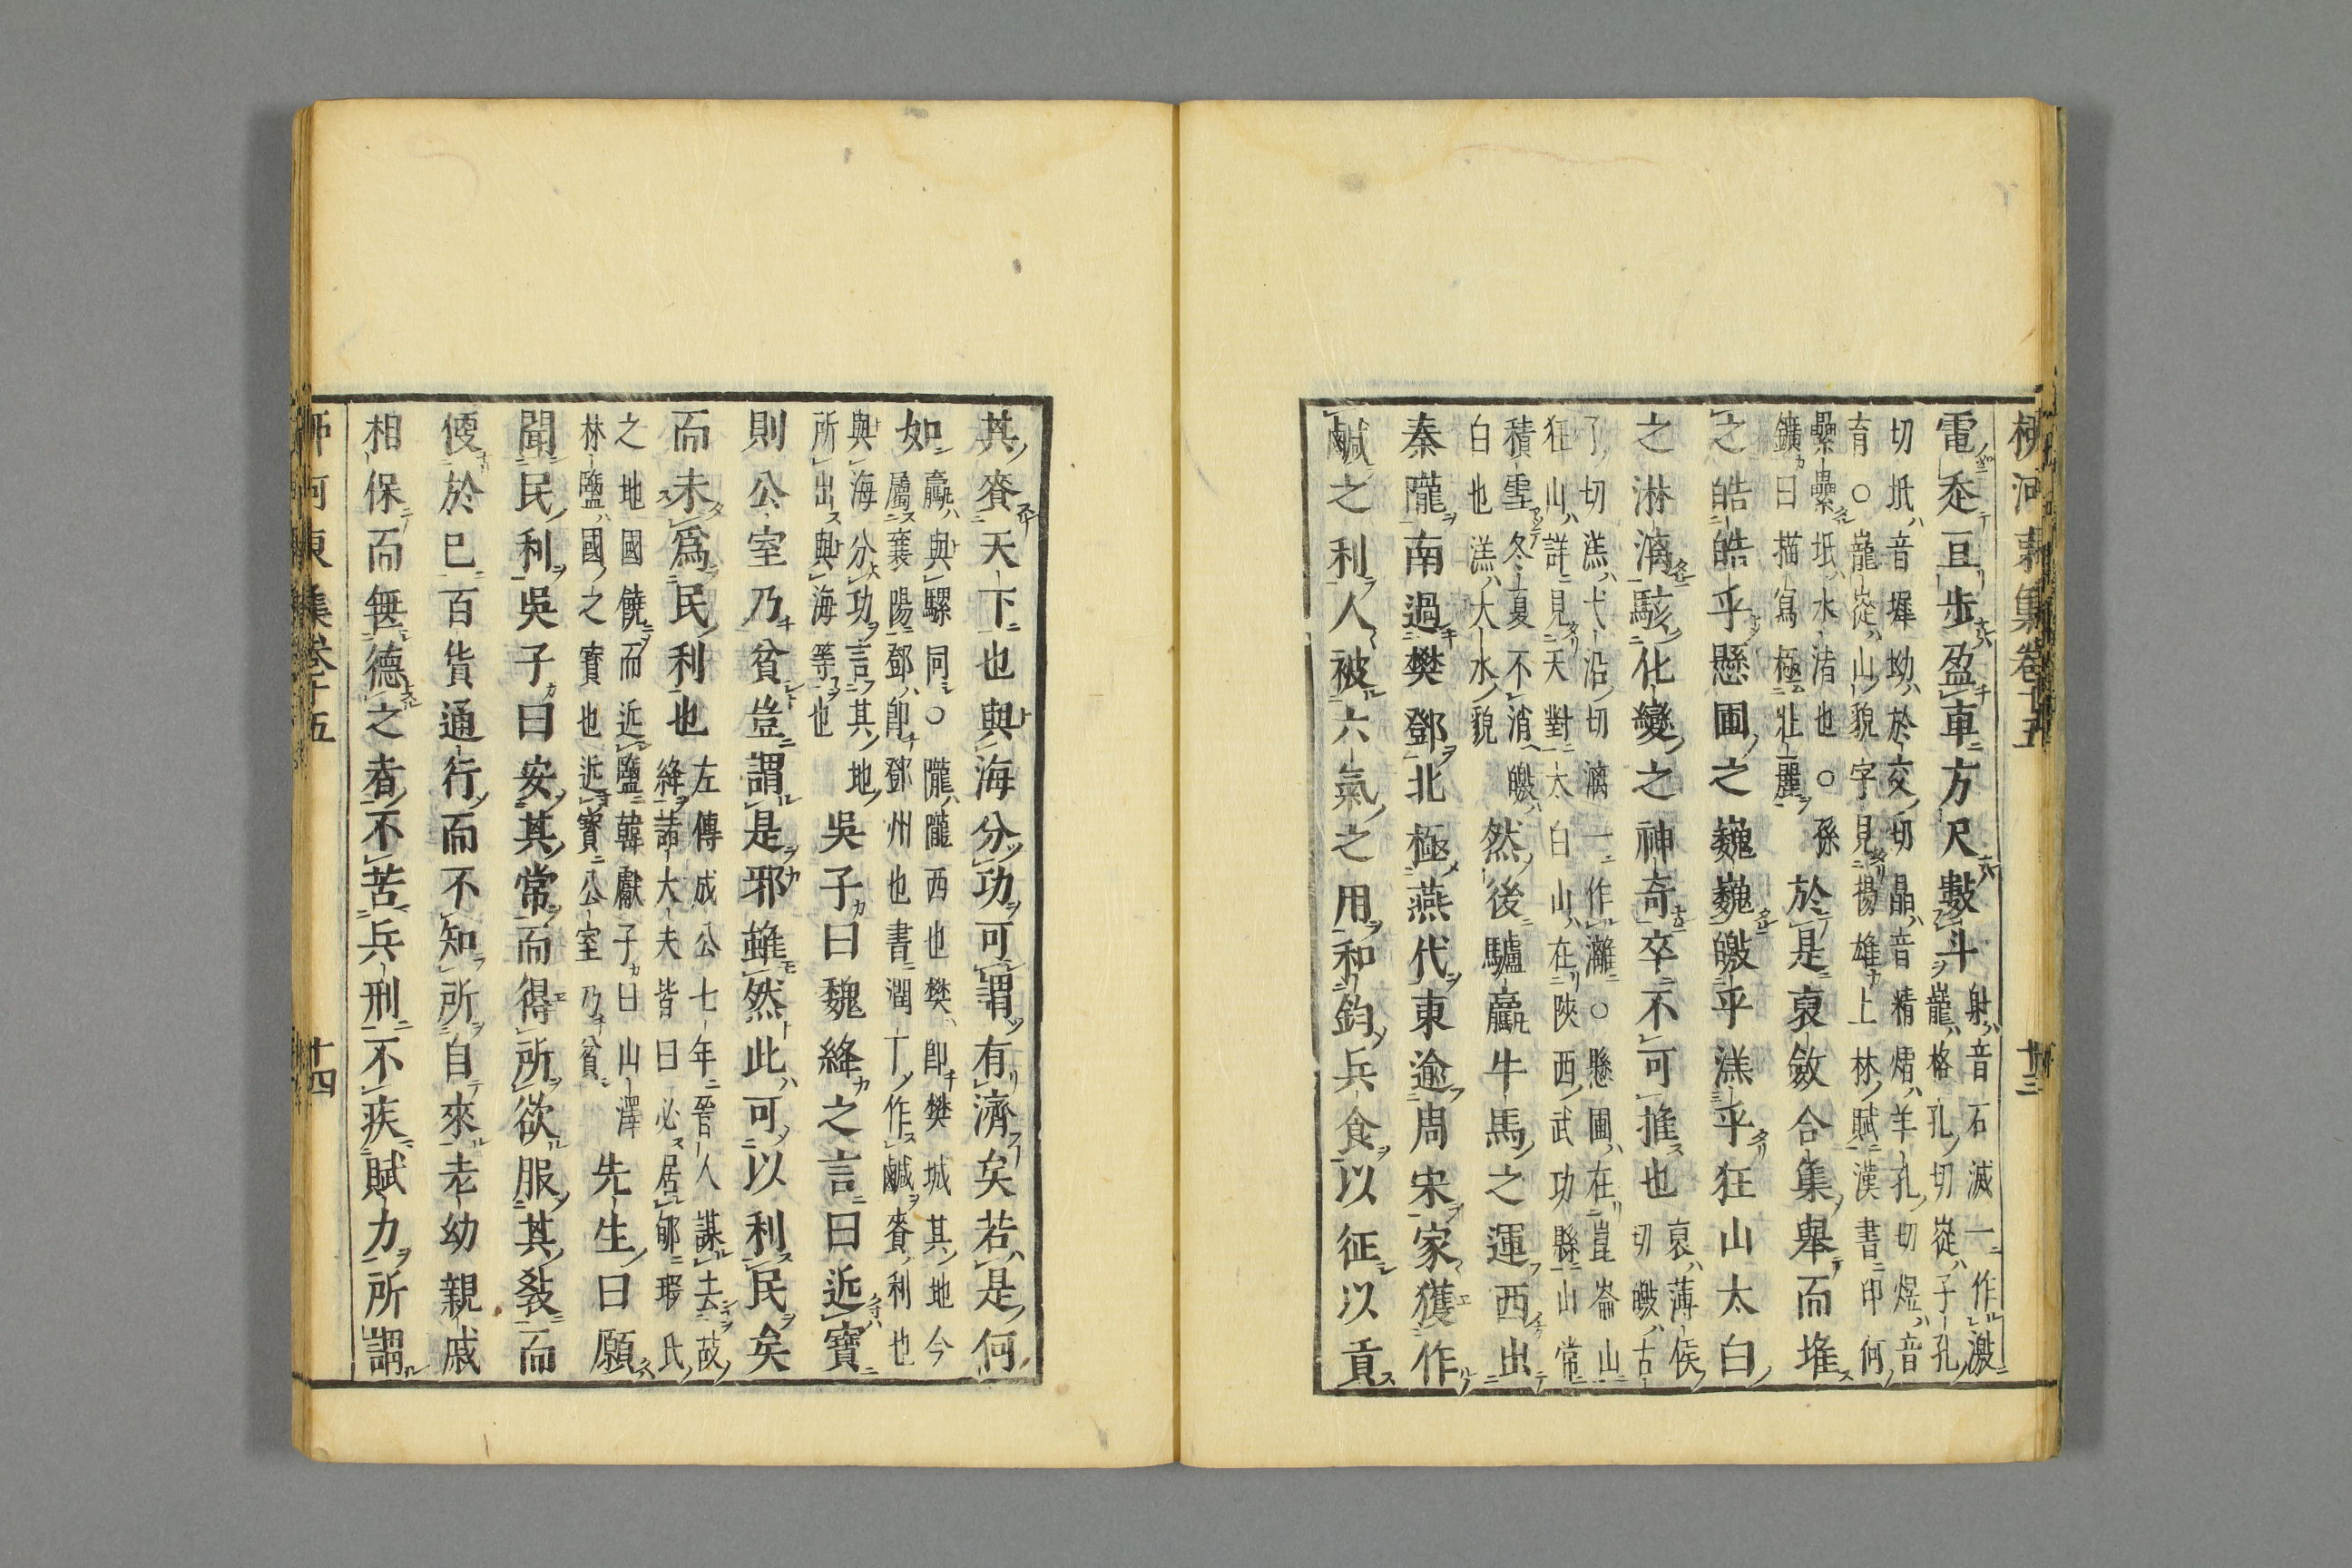 柳河東集卷十五 十三
電走亘步盈車方尺數斗
射音石滅一作激
巃格孔切嵷子孔
切坻音墀坳於交切晶音精熠羊孔切煜音
育○巃嵷山貌字見揚雄上林賦漢書印何
纍纍坻水渚也○孫
鑛曰描寫極壯麗
於是裒斂合集舉而堆
之皓皓乎懸圃之巍巍皦乎溔乎狂山太白
之淋漓駭化變之神奇卒不可推也
裒薄侯切皦古
了切溔弋沼切漓一作灕○懸圃在崑崙山
狂山詳見天對太白山在陝西武功縣山常
積雪冬夏不消皦
白也溔大水貌
然後驢驘牛馬之運西出
秦隴南過樊鄧北極燕代東逾周宋家獲作
鹹之利人被六氣之用和鈞兵食以征以貢
其賚天下也與海分功可謂有濟矣若是何
如
驘與騾同○隴隴西也樊即樊城其地今
屬襄陽鄧即鄧州也書潤下作鹹賚利也
與海分功言其地
所出與海等也
吳子曰魏絳之言曰近寶
則公室乃貧豈謂是邪雖然此可以利民矣
而未為民利也
左傳成公七年晉人謀去故
絳諸大夫皆曰必居郇瑕氏
之地國饒而近鹽韓獻子曰山澤
林鹽國之寶也近寶公室乃貧
先生曰願
聞民利吳子曰安其常而得所欲服其教而
便於已百貨通行而不知所自來老幼親戚
相保而無德之者不苦兵刑不疾賦力所謂
柳河東集卷十五 十四